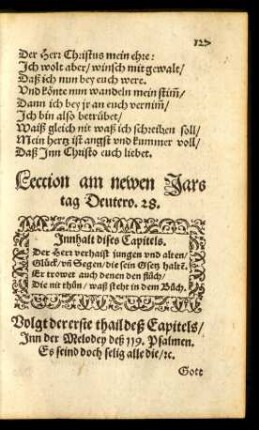 127
Der Herr Christus mein ehre:
Ich wolt aber/ winsch mit gewalt/
Daß ich nun bey euch were.
Vnd könte nun wandeln mein stim̃/
Dann ich bey jr an euch vernim̃/
Ich bin also betrübet/
Waiß gleich nit waß ich schreiben soll/
Mein hertz ist angst vnd kummer voll/
Daß Jnn Christo euch liebet.
Lection am newen Jars
tag Deutero. 28.
Jnnhalt dises Capitels.
Der Herr verhaist jungen vnd alten/
Glück/ vñ Segen/ die sein Gsetz haltẽ.
Er trowet auch denen den flůch/
Die nit thůn/ waß steht in dem Bůch.
Volgt der erste thail deß Capitels/
Jnn der Melodey deß 119. Psalmen.
Es seind doch selig alle die/ꝛc.
Gott